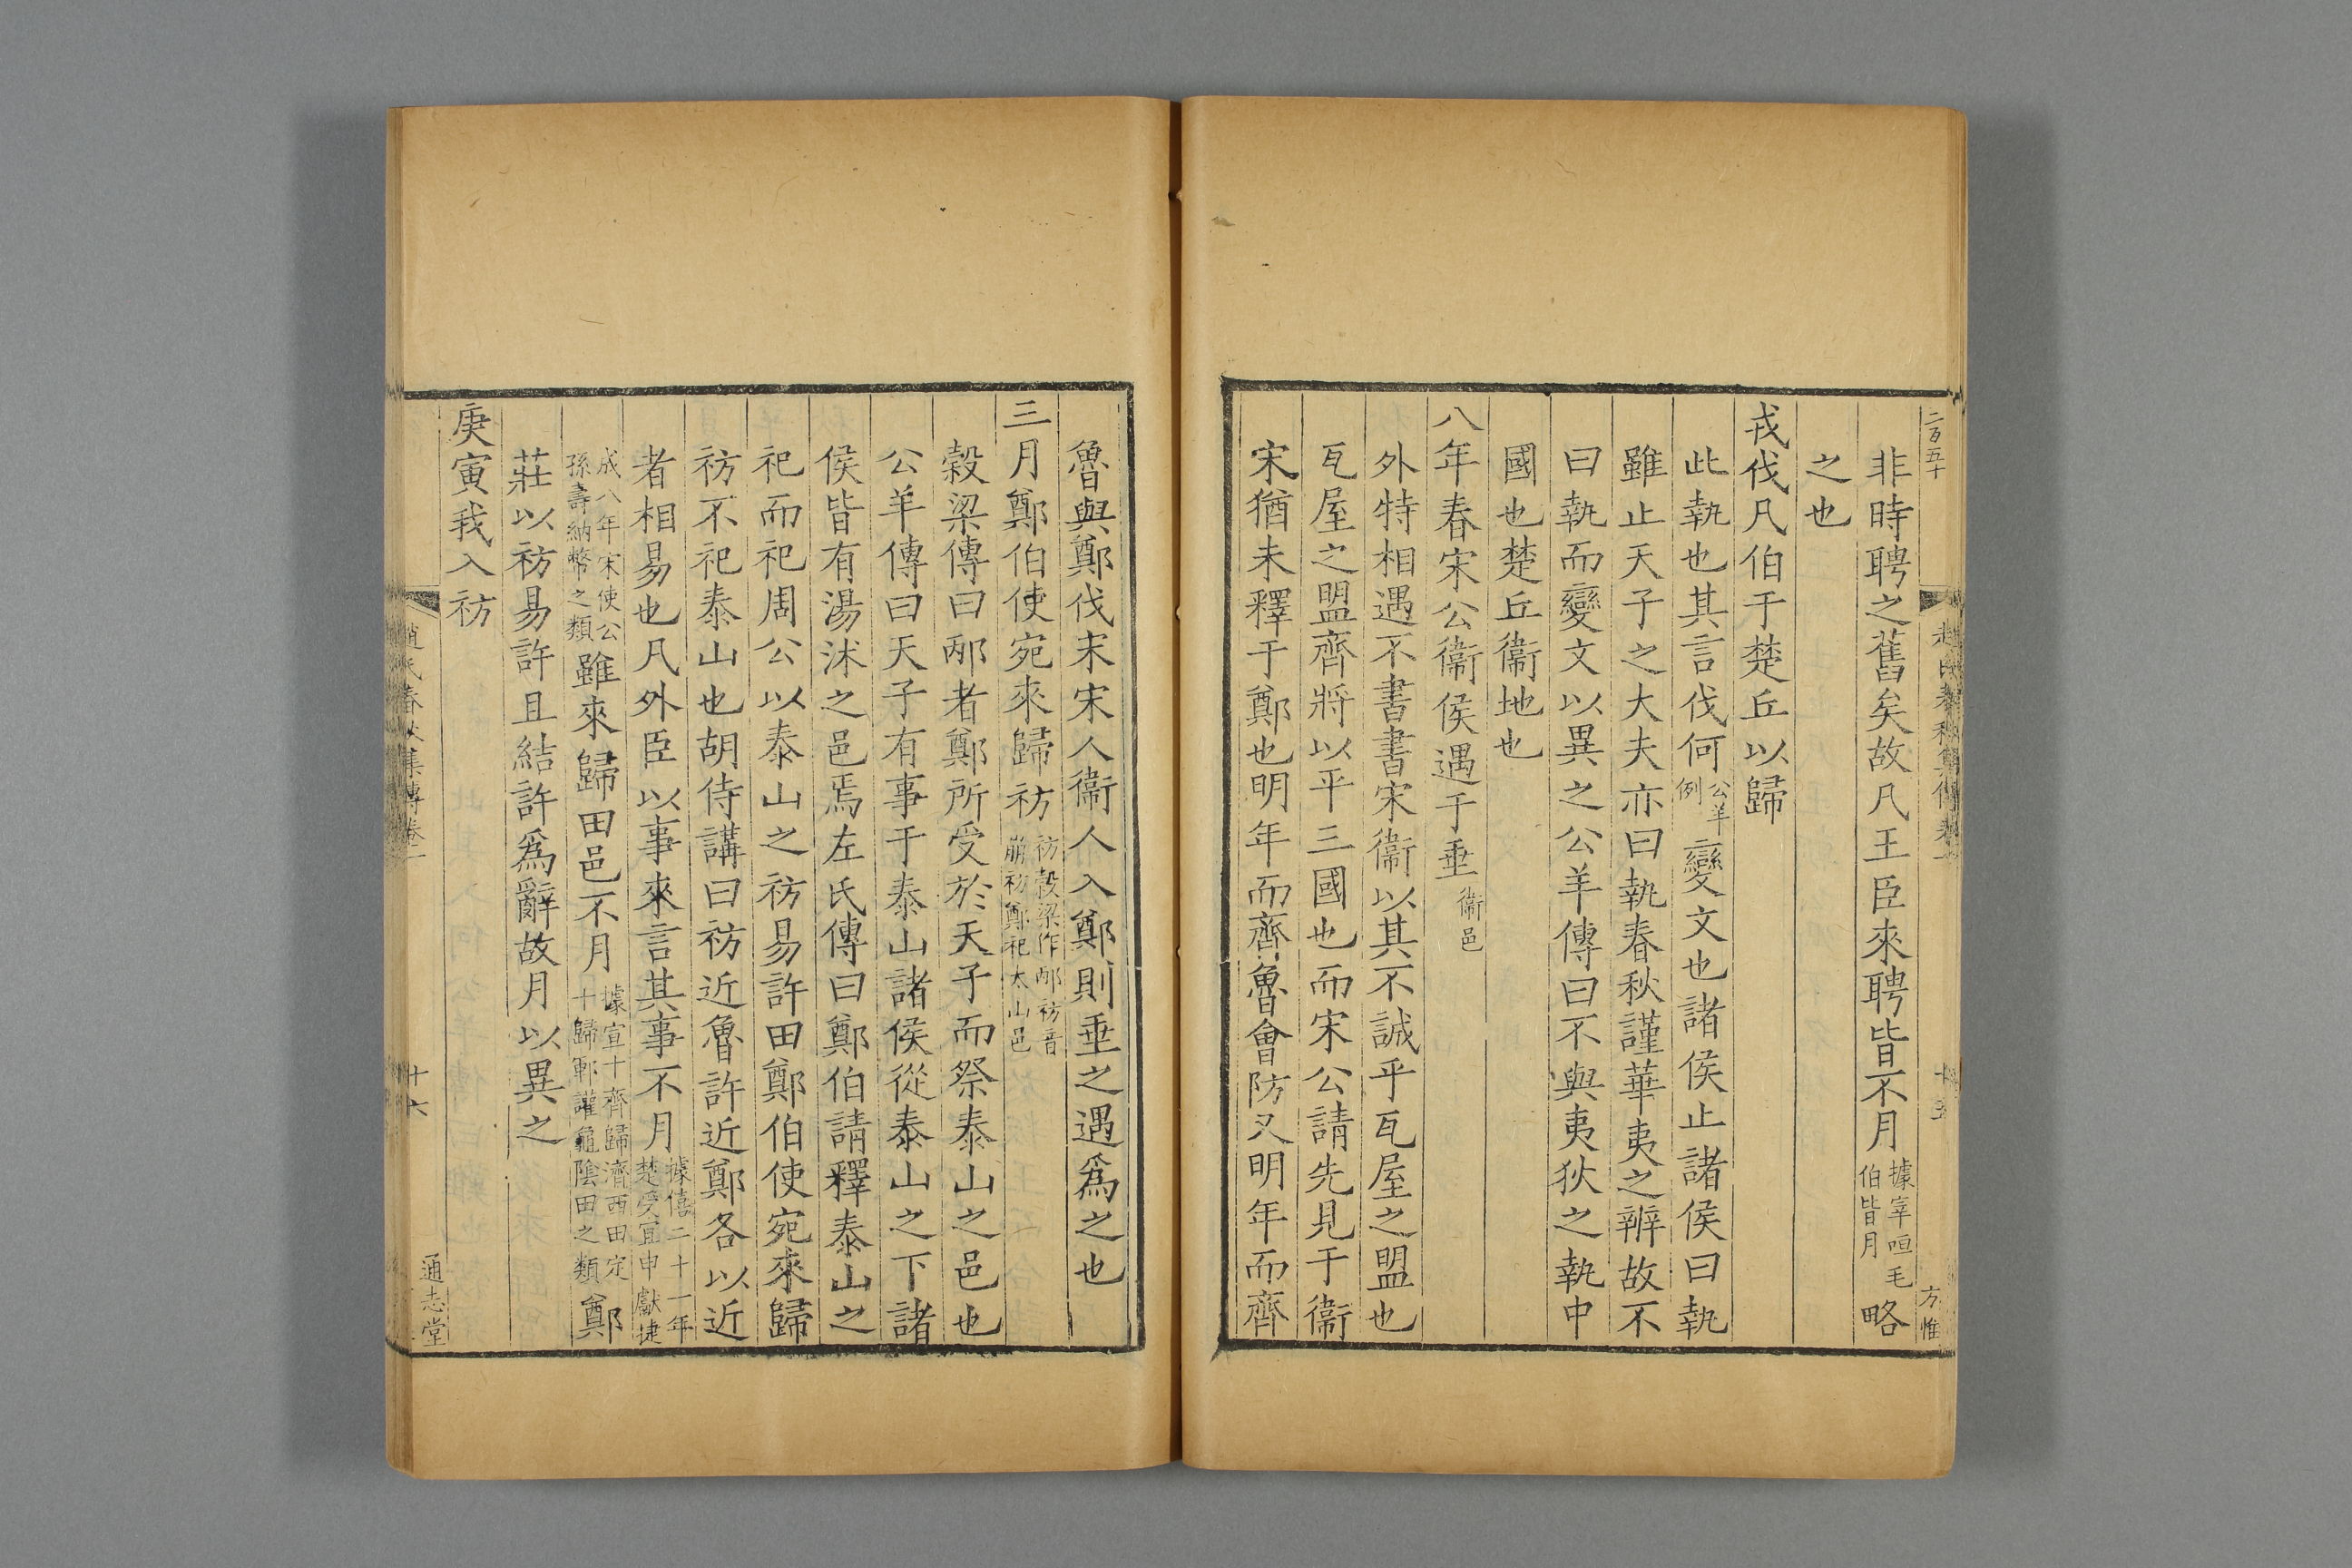 二百五十
趙氏春秋集傳卷一
十五
方惟
非時聘之舊矣故凡王臣來聘皆不月據宰咺毛伯皆月略
之也
戎伐凡伯于楚丘以歸
此執也其言伐何公羊例變文也諸侯止諸侯曰執
雖止天子之大夫亦曰執春秋謹華夷之辨故不
曰執而變文以異之公羊傳曰不與夷狄之執中
國也楚丘衞地也
八年春宋公衞侯遇于垂衞邑
外特相遇不書書宋衞以其不誠乎瓦屋之盟也
瓦屋之盟齊將以平三國也而宋公請先見于衞
宋猶未釋于鄭也明年而齊魯會防又明年而齊
魯與鄭伐宋宋人衞人入鄭則垂之遇爲之也
三月鄭伯使宛來歸祊祊穀梁作邴祊音崩祊鄭祀太山邑
穀梁傳曰邴者鄭所受於天子而祭泰山之邑也
公羊傳曰天子有事于泰山諸侯從泰山之下諸
侯皆有湯沐之邑焉左氏傳曰鄭伯請釋泰山之
祀而祀周公以泰山之祊易許田鄭伯使宛來歸
祊不祀泰山也胡侍講曰祊近魯許近鄭各以近
者相易也凡外臣以事來言其事不月據僖二十一年楚受宜申獻捷
成八年宋使公孫壽納幣之類雖來歸田邑不月據宣十齊歸濟西田定十歸鄆讙龜陰田之類鄭
莊以祊易許且結許爲辭故月以異之
庚寅我入祊
趙氏春秋集傳卷一
十六
通志堂